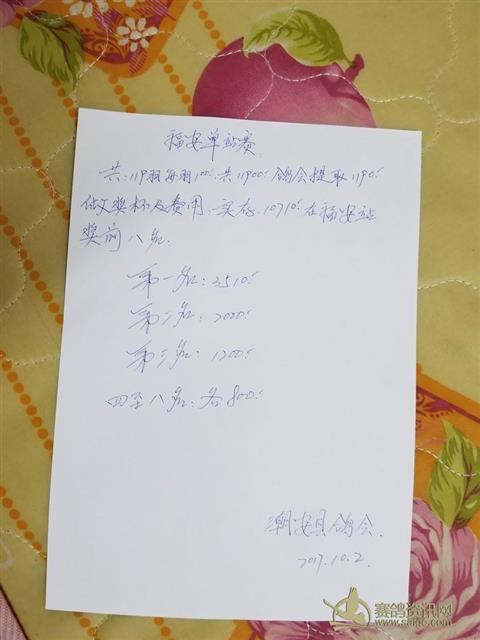 福安单站赛
共:119羽每羽100元共11900元鸽会提取1190元
做奖杯及费用.实存10710元在福安站
奖前八名:
第一名:3510元
第二名:2000元
第三名:1200元
四至八名:各800元
潮安县鸽会.
2017.10.2.
赛鸽资讯网
www.saige.com